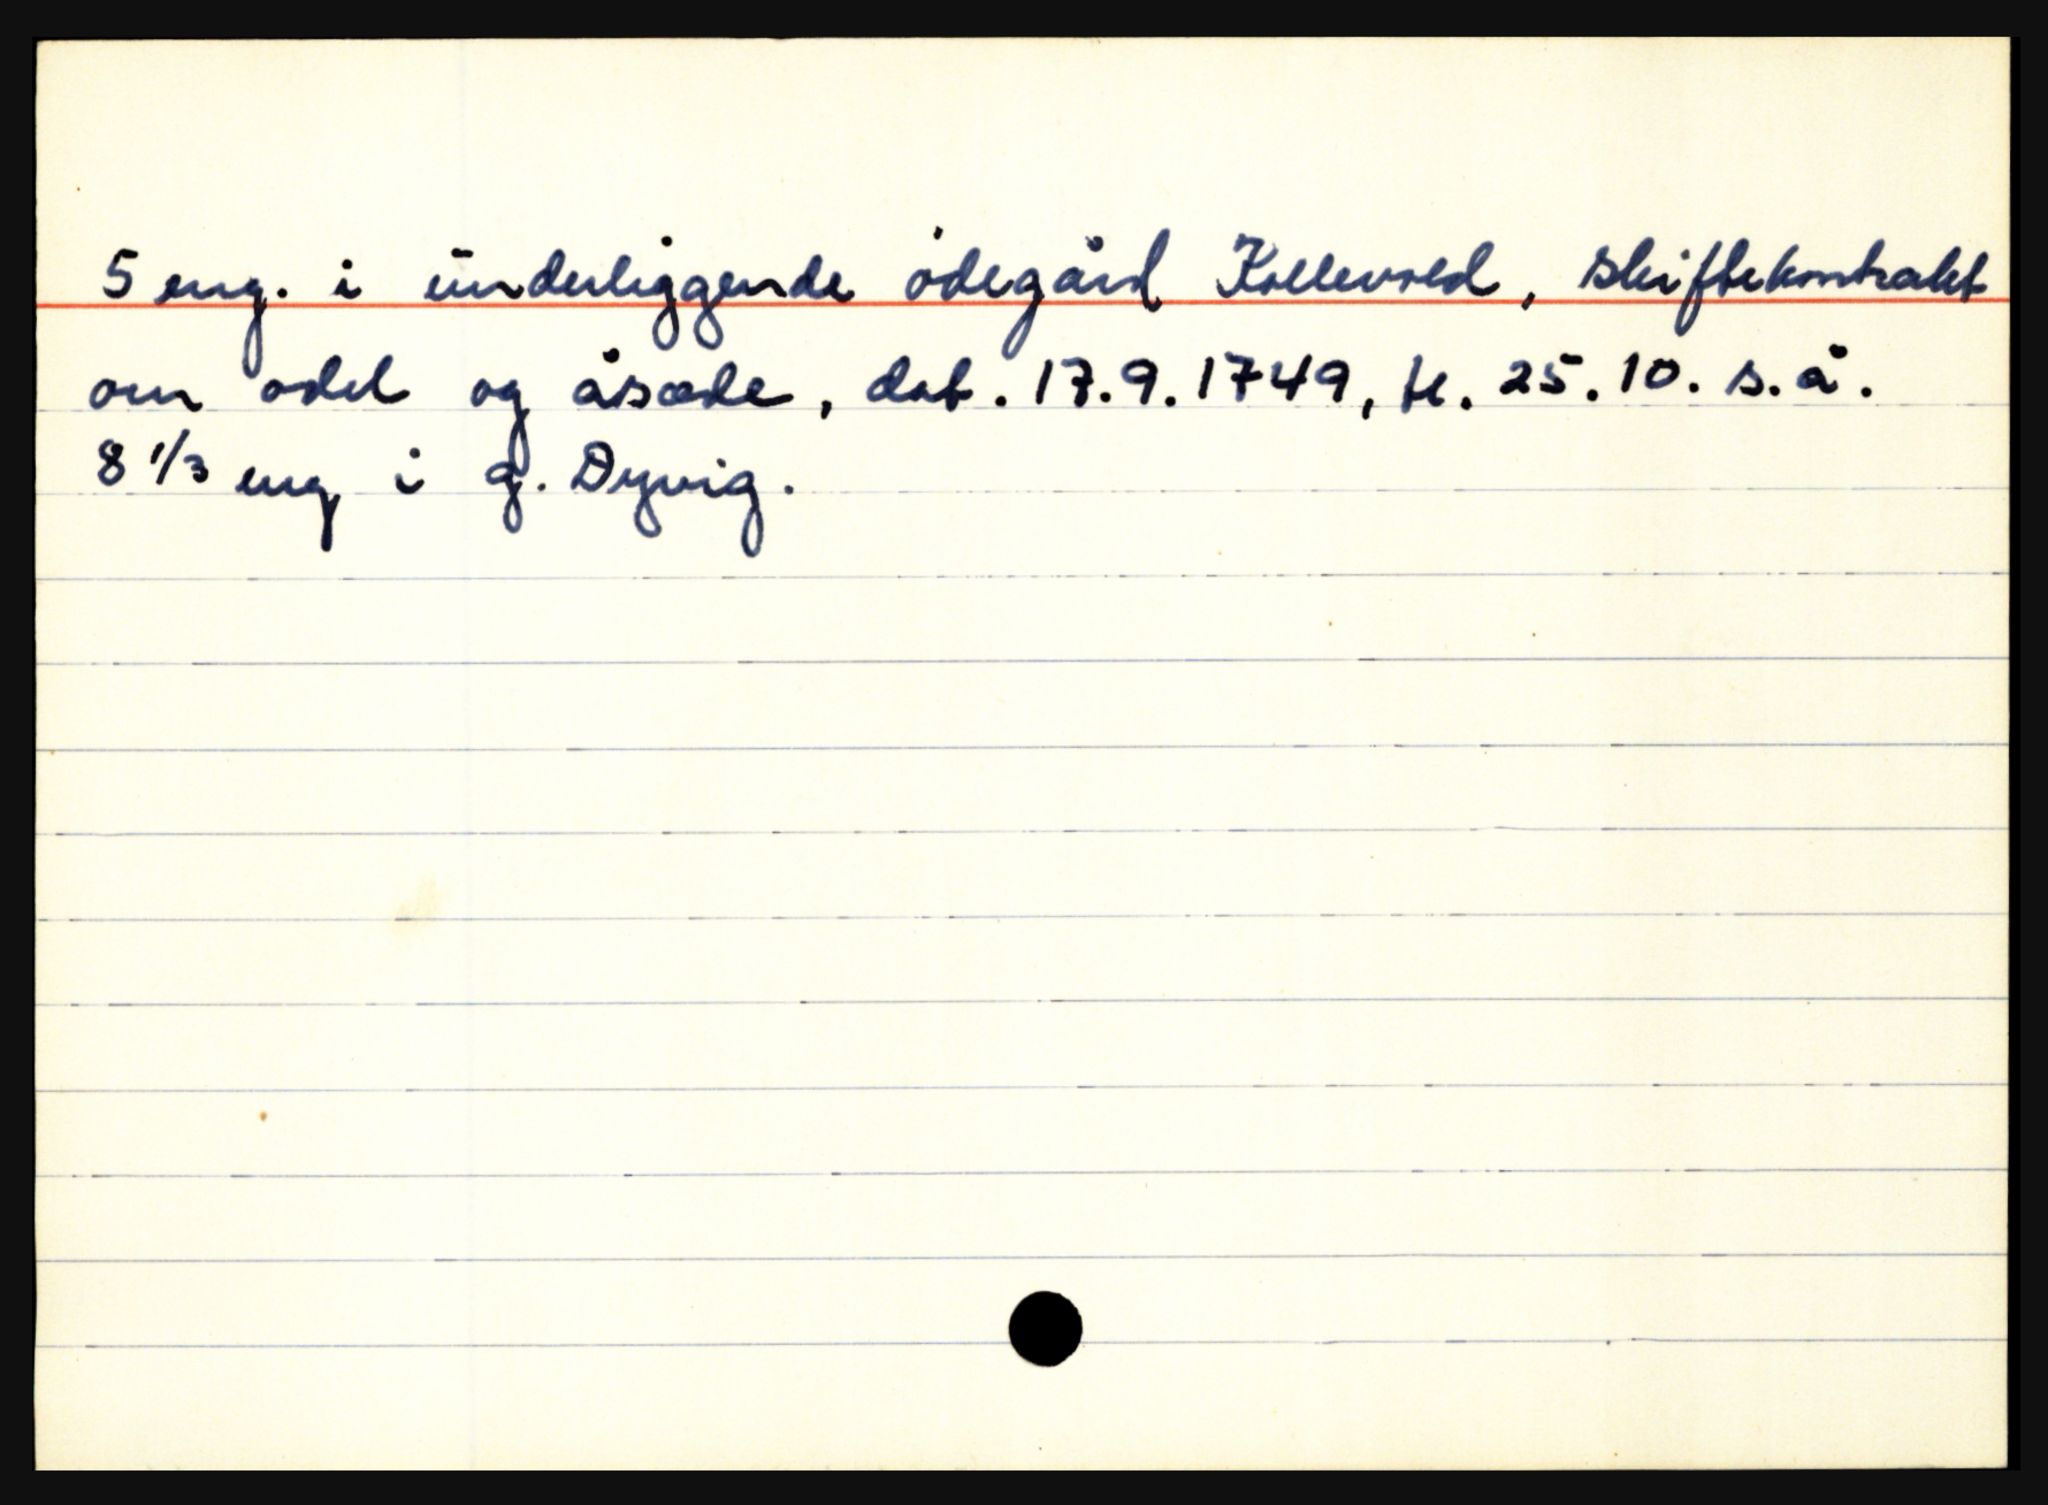 5 eng. i underliggende ödegård Kollevold, skiftekontrakt
om odel og åsæde, dat. 17.9.1749, tl. 25.10. s.å.
8 1/3 eng i g. Dyvig.